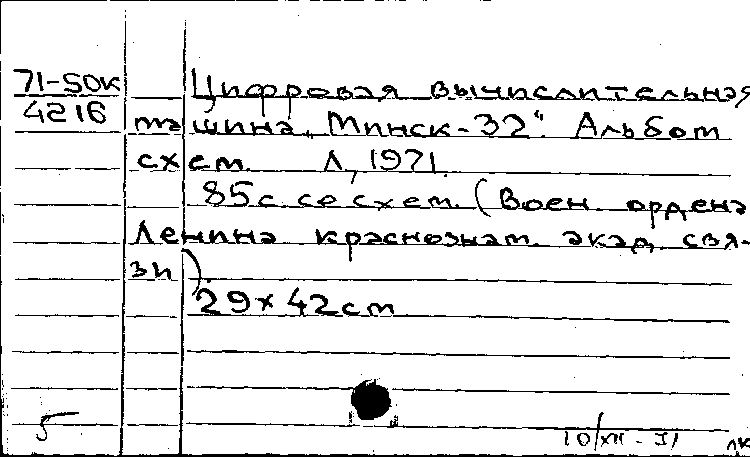 71-50К
4216
Цифровая вычислительная
машина „Минск-32“. Альбом
схем. Л, 1971.
85с. со схем. (Воен. ордена
Ленина краснознам. акад. свя-
зи)
29x42см
5
10/XII-71
лк